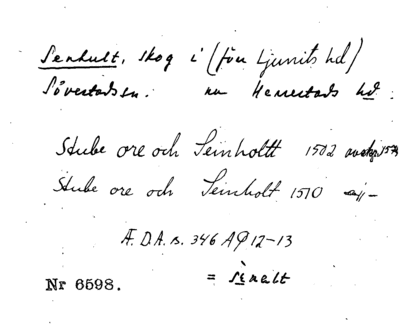 Senhult, skog i (förr Ljunits hd)
Sövestads sn. nu Herrestads hd.
Stube ore och Seinholtt 1502 avskr. 157
Stube ore och Seinholt 1510 -"-
Æ.D.A.B. 346 A9 12-13
Nr 6598. = sènalt